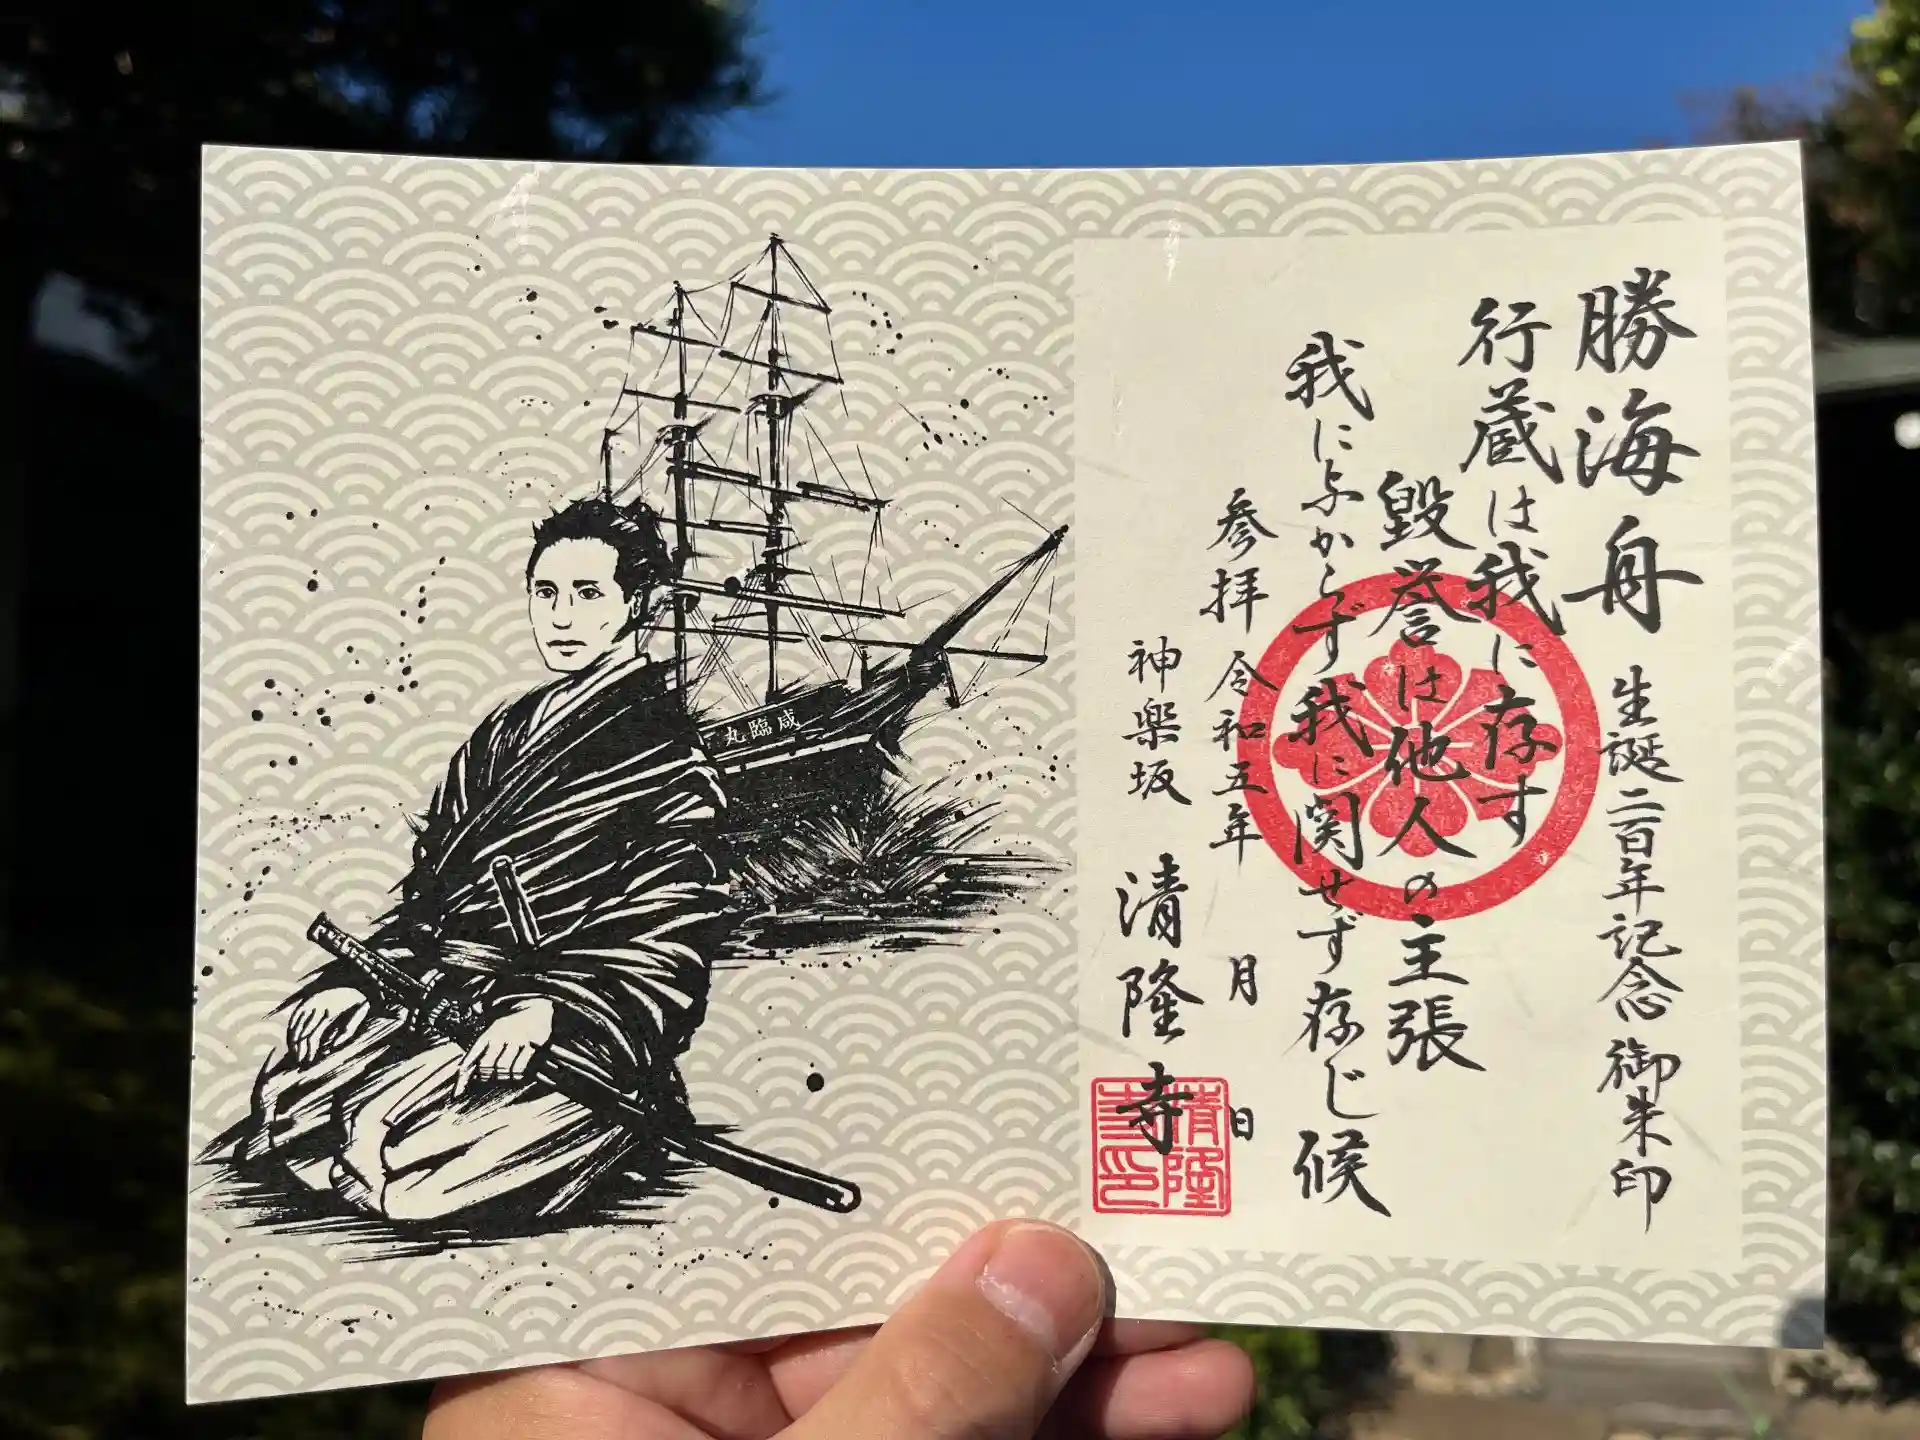 勝海舟 生誕二百年記念 御朱印
行蔵は我に存す
毀誉は他人の主張
我に与からず我に関せず存じ候
参拝 令和五年 月 日
神楽坂 清隆寺
清隆寺印
咸臨丸